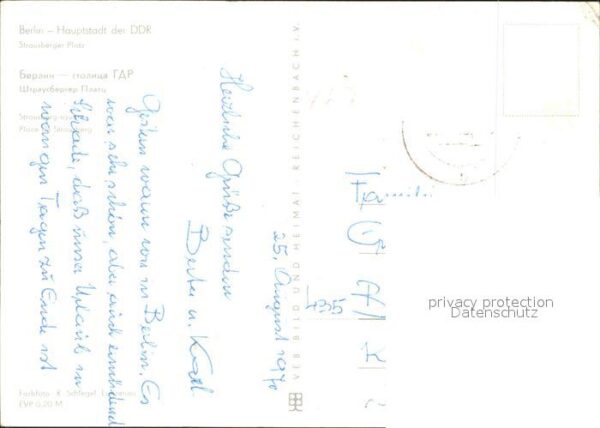 Berlin – Hauptstadt der DDR
Strausberger Platz
Берлин — столица ГДР
Штраусбергер Платц
Place
Strausberg
25. August 1970
Herzliche Grüße senden
Berta u. Karl
Gestern waren wir in Berlin. Es
war sehr schön, aber auch anstrengend
Schade, daß unser Urlaub in
wenigen Tagen zu Ende ist
Farbfoto: K. Schlegel
EVP 0,20 M
VEB BILD UND HEIMAT REICHENBACH i. V.
Familie
privacy protection
Datenschutz